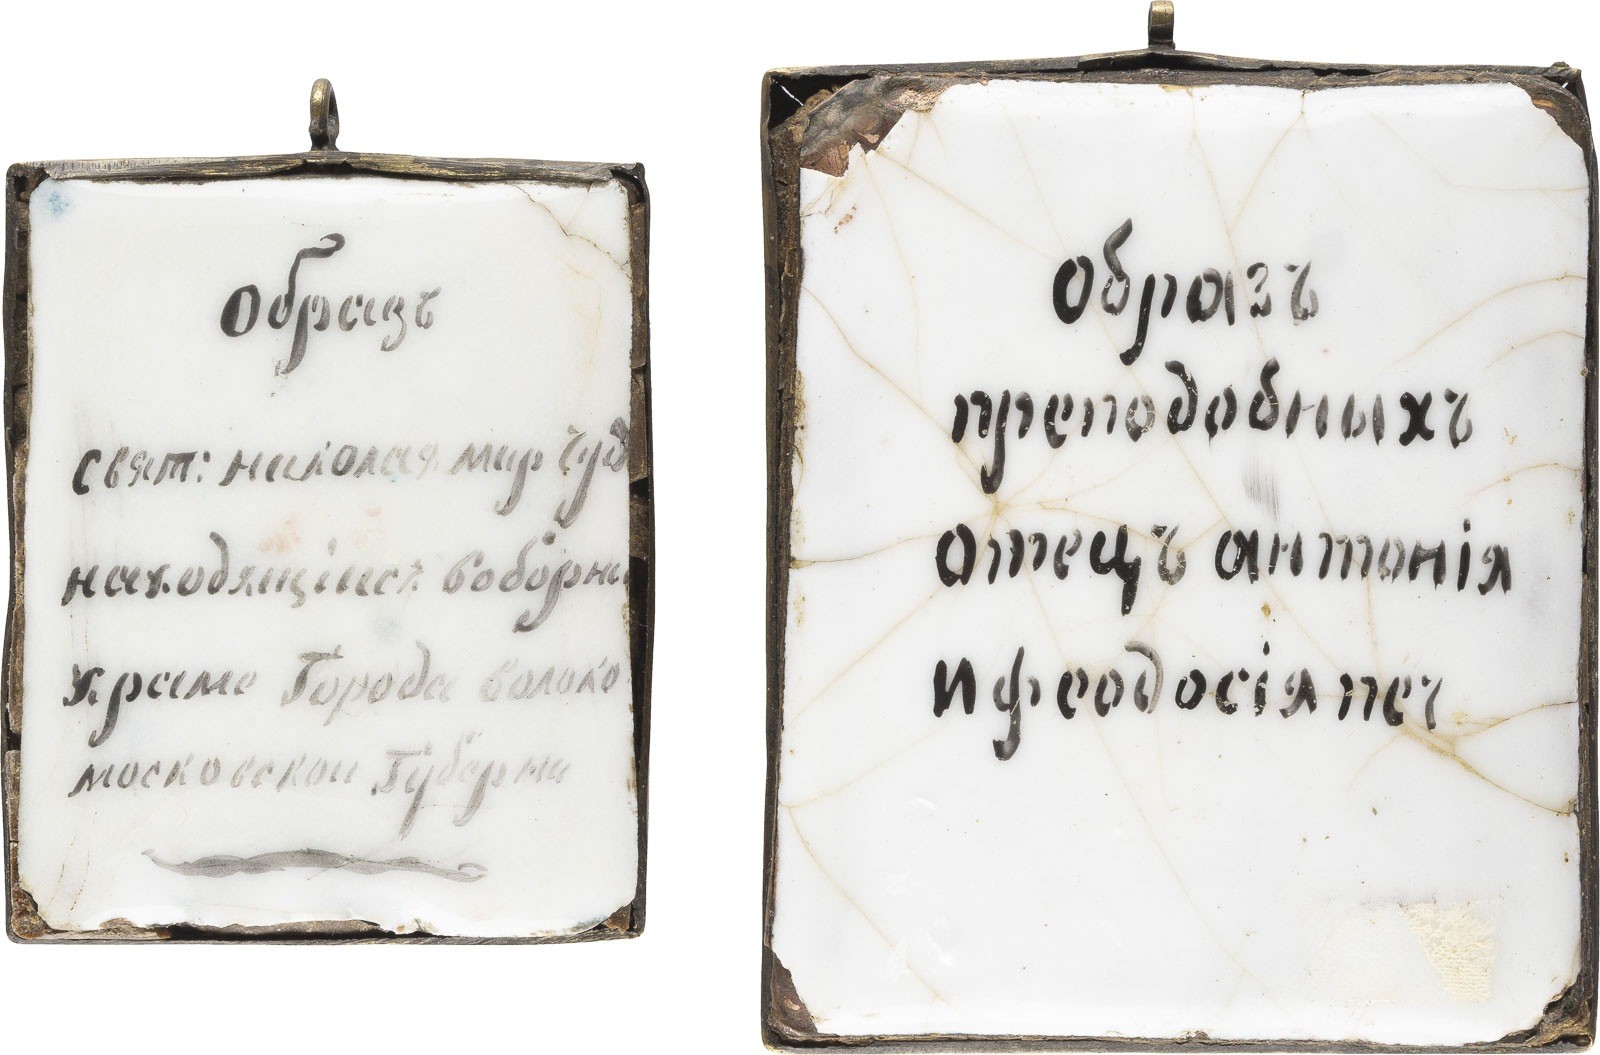 Образъ
свят: николая мир чуд
находящіися воборн
храме Города волоко
московскои Губерни
Образъ
преподобныхъ
отецъ антонія
и феодосія печ